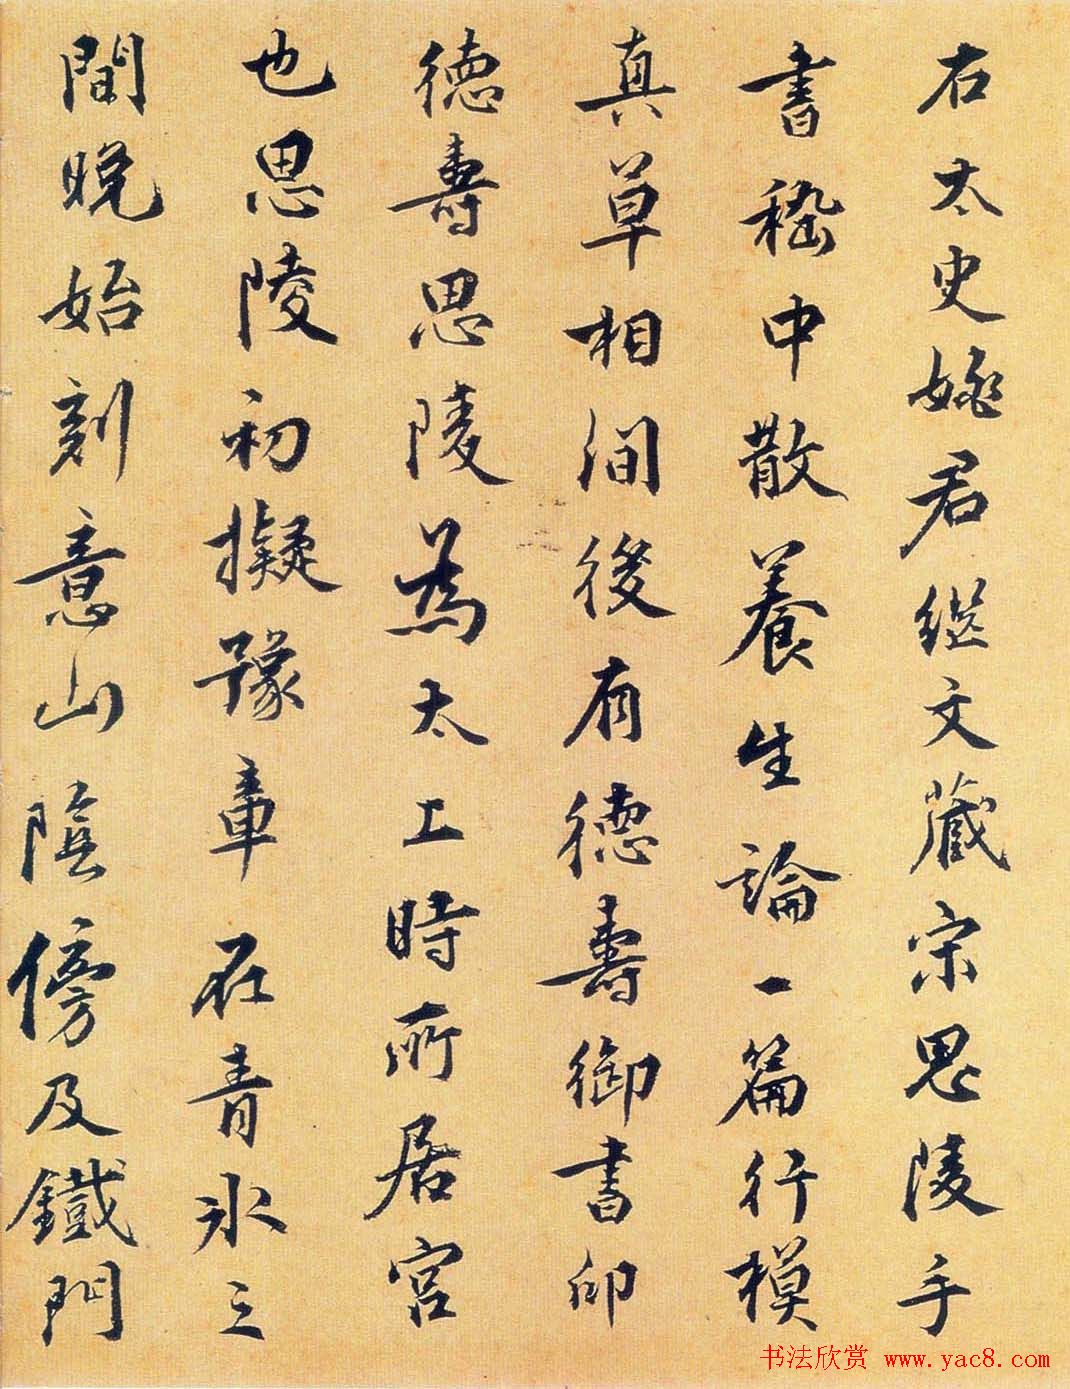 右太史姚君继文藏宋思陵手
書嵇中散養生論一篇行模
真草相间後有德壽御書印
德壽思陵為太上時所居宫
也思陵初擬豫章在青氷之
間晚始刻意山陰傍及鐵門
书法欣赏 www.yac8.com